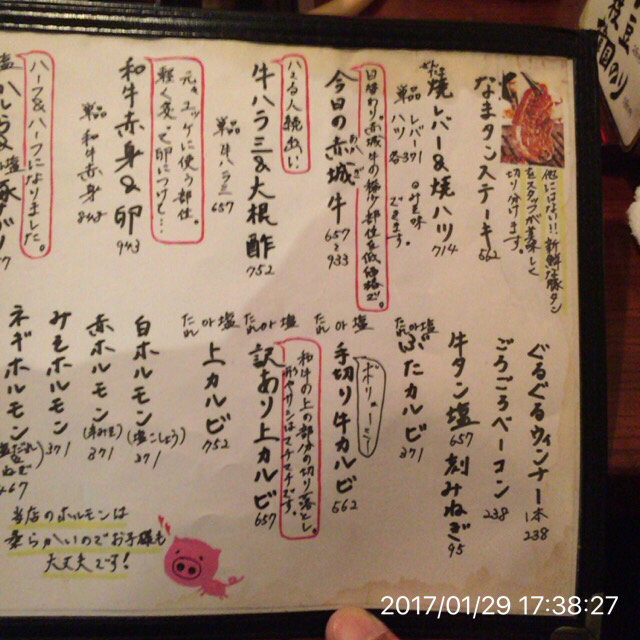 なまタンステーキ 562
他にはない!!新鮮な豚タン
をスタッフが華麗に
切り分けます。
焼レバー&焼ハツ 714
単品 レバー371
ハツ 各371
今日の赤城牛 657~933
日替わり。赤城牛の極少部位を低価格で。
牛ハラミ&大根酢 752
ハマる人続出!!
単品 牛ハラミ 657
和牛赤身&卵 943
元々ユッケに使う部位。
軽く炙って卵につけて…
単品 和牛赤身 848
ハーフ&ハーフになりました。
ぐるぐるウィンナー 1本 238
ごろごろベーコン 238
牛タン塩 657 刻みねぎ 95
たれor塩
ぶたカルビ 371
たれor塩
手切り牛カルビ 562
ボリューミー
たれor塩
訳あり上カルビ 657
和牛の上の部分の切り落とし。
形やサシはマチマチです。
たれor塩
上カルビ 752
白ホルモン (塩こしょう) 371
赤ホルモン (辛みそ) 371
みそホルモン 371
ネギホルモン 467
当店のホルモンは
柔らかいのでお子様も
大丈夫です!
2017/01/29 17:38:27